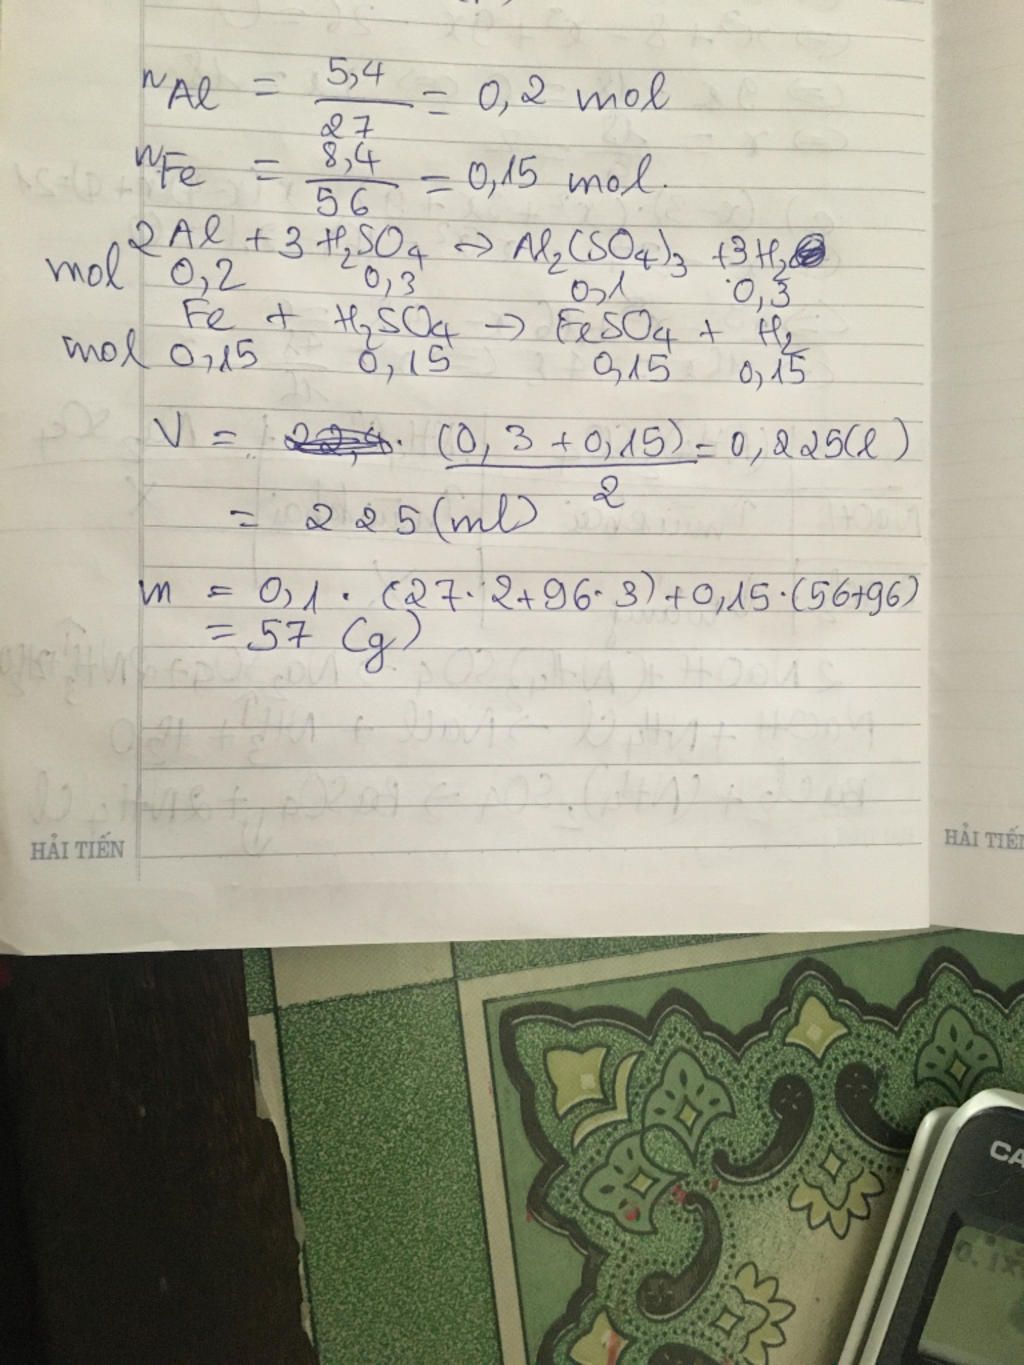 nAl = 5,4/27 = 0,2 mol
nFe = 8,4/56 = 0,15 mol.
2Al + 3H₂SO₄ → Al₂(SO₄)₃ + 3H₂
mol 0,2 0,3 0,1 0,3
Fe + H₂SO₄ → FeSO₄ + H₂
mol 0,15 0,15 0,15 0,15
V = 22,4. (0,3 + 0,15)/2 = 0,225(l)
= 225(ml)
m = 0,1 . (27.2+96.3)+0,15.(56+96)
= 57 (g)
HẢI TIẾN
HẢI TIẾN
CA